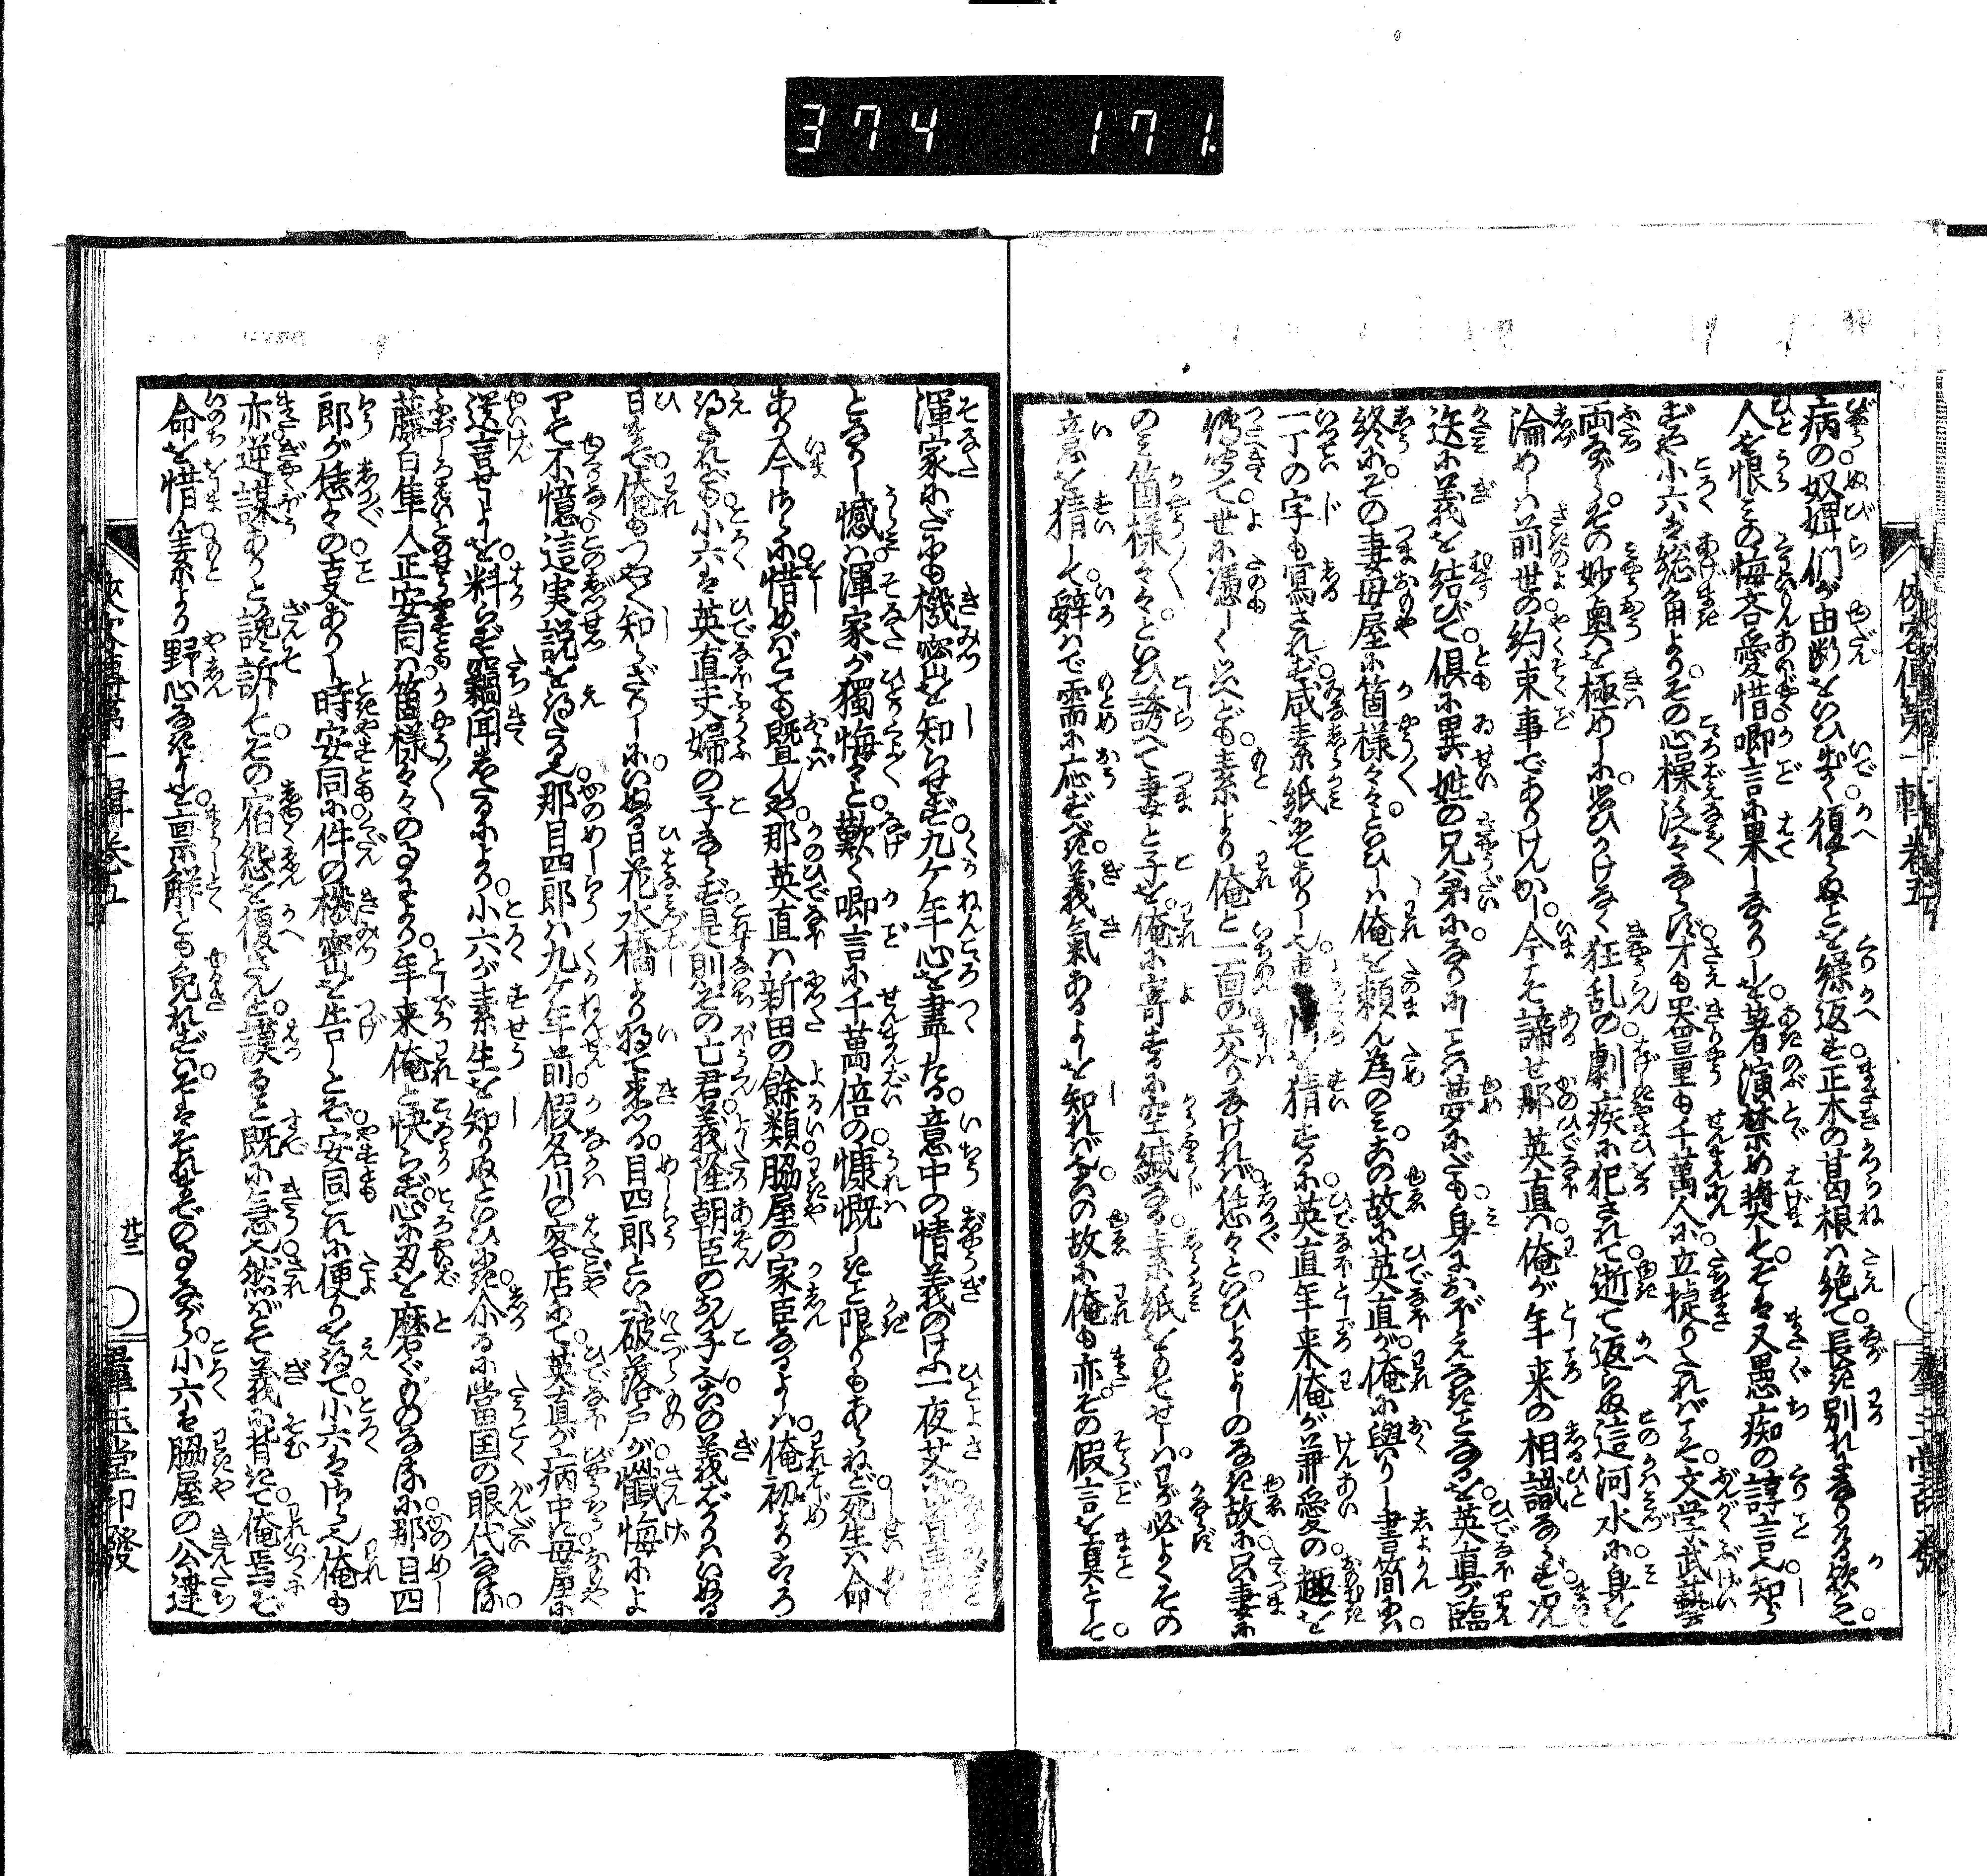 374 171.
病の奴婢們が由断をいひ出て復らぬことを繰返す正木の葛根ハ絶て長き別れになりにける欤とそ
人を恨みの悔吝愛惜啣言に果しなかりしを著演禁め奨してそは又愚痴の諄言人知ら
ずや小六は総角よりその心操泛々ならず才も器量も千萬人に立捷りたればこそ文学武藝
両ながらその妙奥を極めしに思ひかけなく狂乱の劇疾に犯されて逝て返らぬ這河水に身を
淪めしハ前世の約束事でありけんかし今こそ諦せ那英直ハ俺が年来の相識ならず況
迭に義を結びて倶に異姓の兄弟になりしことハ夢にだも身におぼえなきことなるを英直が臨
終にその妻母屋に箇様々々といひしハ俺を頼ん為のミこの故に英直が俺に與りし書簡にハ
一丁の字も寫されず咸素紙にてありしを猜するに英直年来俺が兼愛の趣を
傳聞て世に憑しく思へども素より俺と一面の交りなければ恁々といひよるよしのなき故に只妻に
のミ箇様々々といひ誘へて妻と子を俺に寄するに空緘なる素紙をもてせしハわが必よくその
意を猜して辞ハで需に応ずべき義氣あるよしを知れバなりこの故に俺も亦その假言を真として
渾家にだも機密を知らせず九ケ年心を盡したる意中の情義のけふ一夜艾に
となりし憾ハ渾家が獨悔々と歎く啣言に千萬倍の慷慨しきこと限りもあらねど死生ハ命
あり今さらに惜めバとても曁んや那英直ハ新田の餘類脇屋の家臣なるよしハ俺初よりこゝろ
得たれども小六は英直夫婦の子ならず是則その亡君義隆朝臣の孤子なるこの義ばかりハいぬる
日まで俺もつやつや知らざりしにいぬる日花水橋より將て来つる目四郎といふ破落戸が懺悔によ
りて不憶這実説を得たる也那目四郎ハ九ケ年前假名川の客店にて英直が病中に母屋に
送言せしよしを料らず竊聞したるにより小六が素生を知りぬといひにき介るに當国の眼代なる
藤白隼人正安同ハ箇様々々の事により年来俺と快らず心に刃を磨ぐものなるに那目四
郎が恁々の支ありし時安同に件の機密を告しとぞ安同これに便りを得て小六はさら也俺も
亦逆謀ありと讒訴してその宿怨を復さんと謨ると既に急へ然ばとて義に背きて俺焉ぞ
命を惜ん素より野心なきよしを禀解とも免れずハいそはそれまでの事ながら小六は脇屋の公達
廿三